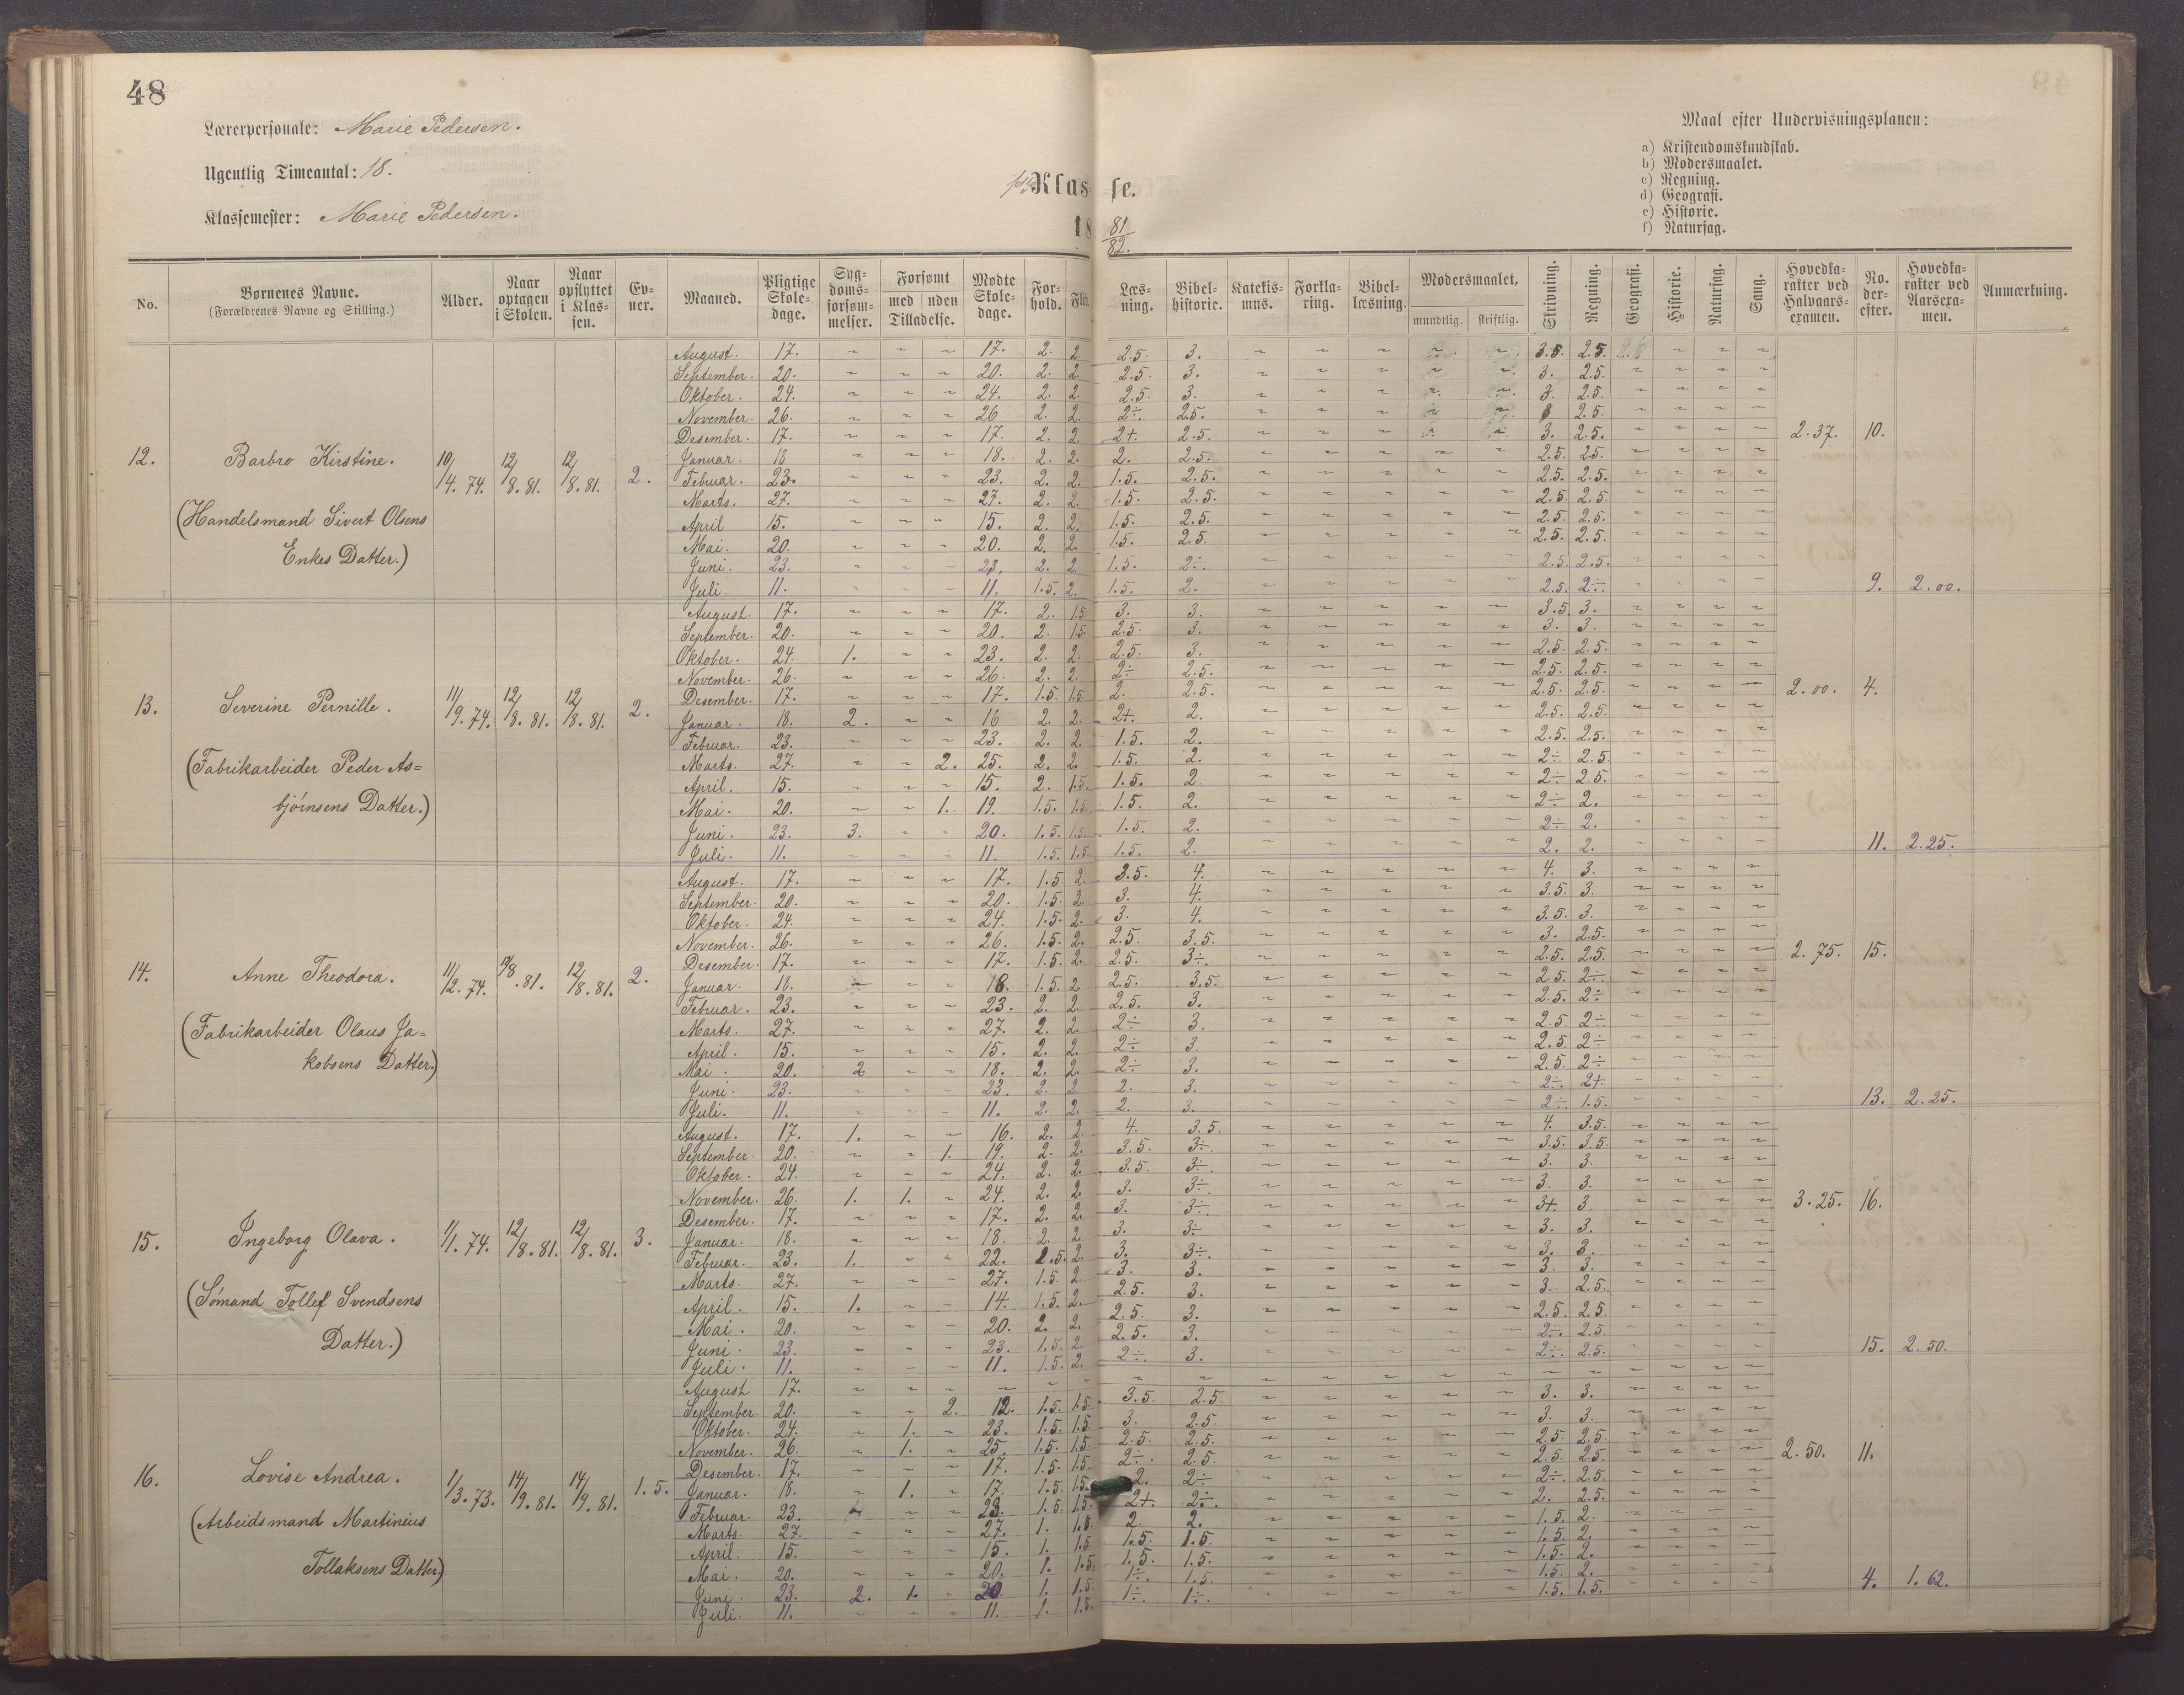 48
Lærerpersonale: Marie Pedersen.
Ugentlig Timeantal: 18.
Klassemester: Marie Pedersen.
Klasse.
18 81/82.
Maal efter Undervisningsplanen:
a) Kristendomskundskab.
b) Modersmaalet.
c) Regning.
d) Geografi.
e) Historie.
f) Naturfag.
No. Børnenes Navne. (Forældrenes Navne og Stilling.) Alder. Naar optagen i Skolen. Naar opflyttet i Klassen. Evner. Maaned. Pligtige Skoledage. Sygdomsforsømmelser. Forsømt med uden Tilladelse. Mødte Skoledage. Forhold. Flid. Læsning. Bibelhistorie. Katekismus. Forklaring. Bibellæsning. Modersmaalet, mundtlig. skriftlig. Skrivning. Regning. Geografi. Historie. Naturfag. Sang. Hovedkarakter ved Halvaarsexamen. No. derefter. Hovedkarakter ved Aarsexamen. Anmærkning.
12. Barbro Kirstine. 10/4. 74. 12/8. 81. 12/8. 81. 2.
(Handelsmand Sivert Olsens
Enkes Datter.)
August. 17. ~ ~ ~ 17. 2. 2. 2.5. 3. ~ ~ ~ ~ ~ 3.5. 2.5. ~ ~ ~
September. 20. ~ ~ ~ 20. 2. 2. 2.5. 3. ~ ~ ~ ~ ~ 3. 2.5. ~ ~ ~ ~
Oktober. 24. ~ ~ ~ 24. 2. 2. 2.5. 3. ~ ~ ~ ~ ~ 3. 2.5. ~ ~ ~ ~
November. 26. ~ ~ ~ 26 2. 2. 2÷. 2.5. ~ ~ ~ ~ ~ 2.5. ~ ~ ~ ~
Desember. 17. ~ ~ ~ 17. 2. 2. 2+. 2.5. ~ ~ ~ ~ ~ 3. 2.5. ~ ~ ~ ~ 2.37. 10.
Januar. 18 ~ ~ ~ 18. 2. 2. 2. 2.5. ~ ~ ~ ~ ~ 2.5. 2.5. ~ ~ ~ ~
Februar. 23. ~ ~ ~ 23. 2. 2. 1.5. 2.5. ~ ~ ~ ~ ~ 2.5. 2.5. ~ ~ ~ ~
Marts. 27. ~ ~ ~ 27. 2. 2. 1.5. 2.5. ~ ~ ~ ~ ~ 2.5. 2.5. ~ ~ ~ ~
April 15. ~ ~ ~ 15. 2. 2. 1.5. 2.5. ~ ~ ~ ~ ~ 2.5. 2.5. ~ ~ ~ ~
Mai. 20. ~ ~ ~ 20. 2. 2. 1.5. 2.5. ~ ~ ~ ~ ~ 2.5. 2.5. ~ ~ ~ ~
Juni. 23. ~ ~ ~ 23. 2. 2. 1.5. 2÷. ~ ~ ~ ~ ~ 2.5. 2.5. ~ ~ ~ ~
Juli. 11. ~ ~ ~ 11. 1.5. 2. 1.5. 2. ~ ~ ~ ~ ~ 2.5. 2÷. ~ ~ ~ ~ 9. 2.00.
13. Severine Pernille. 11/9. 74. 12/8. 81. 12/8. 81. 2.
(Fabrikarbeider Peder As=
bjørnsens Datter.)
August. 17. ~ ~ ~ 17. 2. 1.5. 3. 3. ~ ~ ~ ~ ~ 3.5. 3. ~ ~ ~ ~
September. 20. ~ ~ ~ 20. 2. 1.5. 2.5. 3. ~ ~ ~ ~ ~ 3. 3. ~ ~ ~ ~
Oktober. 24. 1. ~ ~ 23. 2. 2. 2.5. 3. ~ ~ ~ ~ ~ 2.5. 2.5. ~ ~ ~ ~
November. 26. ~ ~ ~ 26. 2. 2. 2÷ 2.5. ~ ~ ~ ~ ~ 2.5. 2.5. ~ ~ ~ ~
Desember. 17. ~ ~ ~ 17. 1.5. 1.5. 2. 2.5. ~ ~ ~ ~ ~ 2.5. 2.5. ~ ~ ~ ~ 2.00. 4.
Januar. 18. 2. ~ ~ 16 2. 2. 2+. 2. ~ ~ ~ ~ ~ 2.5. 2.5. ~ ~ ~ ~
Februar. 23. ~ ~ ~ 23. 2. 2. 1.5. 2. ~ ~ ~ ~ ~ 2.5. 2.5. ~ ~ ~ ~
Marts. 27. ~ ~ 2. 25. 2. 2. 1.5. 2. ~ ~ ~ ~ ~ 2÷ 2.5. ~ ~ ~ ~
April. 15. ~ ~ ~ 15. 2. 1.5. 1.5. 2. ~ ~ ~ ~ ~ 2÷ 2.5. ~ ~ ~ ~
Mai. 20. ~ ~ 1. 19. 1.5. 1.5. 1.5. 2. ~ ~ ~ ~ ~ 2÷ 2. ~ ~ ~ ~
Juni. 23. 3. ~ ~ 20. 1.5. 1.5. 1.5. 2. ~ ~ ~ ~ ~ 2÷ 2. ~ ~ ~ ~
Juli. 11. ~ ~ ~ 11. 1.5. 1.5. 1.5. 2. ~ ~ ~ ~ ~ 2. 2. ~ ~ ~ ~ 11. 2.25.
14. Anne Theodora. 11/12. 74. 81. 12/8. 81. 2.
(Fabrikarbeider Olaus Ja=
kobsens Datter.)
August. 17. ~ ~ ~ 17. 1.5 2. 3.5. 4. ~ ~ ~ ~ ~ 4. 3. ~ ~ ~ ~
September. 20. ~ ~ ~ 20. 1.5. 2. 3. 4. ~ ~ ~ ~ ~ 3.5. 3. ~ ~ ~ ~
Oktober. 24. ~ ~ ~ 24. 1.5. 2. 3. 4. ~ ~ ~ ~ ~ 3.5. 3. ~ ~ ~ ~
November. 26. ~ ~ ~ 26. 1.5. 2. 2.5. 3.5. ~ ~ ~ ~ ~ 3. 2.5. ~ ~ ~ ~
Desember. 17. ~ ~ ~ 17. 1.5. 2. 2.5. 3÷. ~ ~ ~ ~ ~ 2.5. 2.5. ~ ~ ~ ~ 2.75. 15.
Januar. 18. ~ ~ ~ 18. 1.5. 2 2.5. 3.5. ~ ~ ~ ~ ~ 2.5. 2÷. ~ ~ ~ ~
Februar. 23. ~ ~ ~ 23. 2. 2. 2.5. 3. ~ ~ ~ ~ ~ 2.5. 2÷ ~ ~ ~ ~
Marts. 27. ~ ~ ~ 27. 2. 2. 2÷ 3. ~ ~ ~ ~ ~ 2.5. 2÷. ~ ~ ~ ~
April. 15. ~ ~ ~ 15. 2. 2. 2÷ 3. ~ ~ ~ ~ ~ 2.5. 2÷ ~ ~ ~ ~
Mai. 20. 2 ~ ~ 18. 2. 2. 2÷ 3. ~ ~ ~ ~ ~ 2.5. 2÷ ~ ~ ~ ~
Juni. 23. ~ ~ ~ 23. 2. 2. 2. 3. ~ ~ ~ ~ ~ 2÷. 2+. ~ ~ ~ ~
Juli. 11. ~ ~ ~ 11. 2. 2. 2. 3. ~ ~ ~ ~ ~ 2÷. 1.5. ~ ~ ~ ~ 13. 2.25.
15. Ingeborg Olava. 1/1. 74. 12/8. 81. 12/8. 81. 3.
(Sømand Tollef Svendsens
Datter.)
August. 17. 1. ~ ~ 16. 2. 2. 4. 3.5. ~ ~ ~ ~ ~ 4. 3.5. ~ ~ ~ ~
September. 20. ~ ~ 1. 19. 2. 2. 3.5. 3÷. ~ ~ ~ ~ ~ 3.5. 3.5. ~ ~ ~ ~
Oktober. 24. ~ ~ ~ 24. 2. 2. 3.5. 3÷. ~ ~ ~ ~ ~ 3. 3. ~ ~ ~ ~
November. 26. 1. 1. ~ 24. 2. 2. 3. 3÷. ~ ~ ~ ~ ~ 3. 3. ~ ~ ~ ~
Desember. 17. ~ ~ ~ 17. 2. 2. 3. 3÷. ~ ~ ~ ~ ~ 3+. 3. ~ ~ ~ ~ 3.25. 16.
Januar. 18. ~ ~ ~ 18. 2. 2 3. 3÷ ~ ~ ~ ~ ~ 3. 3. ~ ~ ~ ~
Februar. 23. 1. ~ ~ 22. 1.5. 2. 3. 3÷. ~ ~ ~ ~ ~ 3. 3. ~ ~ ~ ~
Marts. 27. ~ ~ ~ 27. 1.5. 2. 3. 3. ~ ~ ~ ~ ~ 3. 3. ~ ~ ~ ~
April. 15. 1. ~ ~ 14. 1.5. 2. 2.5. 3. ~ ~ ~ ~ ~ 3. 2.5. ~ ~ ~ ~
Mai. 20. ~ ~ ~ 20. 2. 2. 2.5. 3. ~ ~ ~ ~ ~ 2.5. 2.5. ~ ~ ~ ~
Juni. 23. ~ ~ ~ 23. 1.5. 2. 2.5. 3. ~ ~ ~ ~ ~ 2÷. 2.5. ~ ~ ~ ~
Juli. 11. ~ ~ ~ 11. 1.5. 2. 2÷. 3. ~ ~ ~ ~ ~ 2÷. 2.5. ~ ~ ~ ~ 15. 2.50.
16. Lovise Andrea. 1/3. 73. 14/9. 81. 14/9. 81. 1.5.
(Arbeidsmand Martinius
Tollaksens Datter)
August 17. ~ ~ ~ ~ ~ ~ ~ ~ ~ ~ ~ ~ ~ ~ ~ ~ ~ ~ ~
September. 20. ~ ~ 2. 12. 1.5. 1.5. 3.5. 2.5. ~ ~ ~ ~ ~ 3. 3. ~ ~ ~ ~
Oktober. 24. ~ 1. ~ 23. 1.5. 1.5. 3. 2.5. ~ ~ ~ ~ ~ 3. 3. ~ ~ ~ ~
November. 26. ~ 1. ~ 25. 1.5. 1.5. 2.5. 2.5. ~ ~ ~ ~ ~ 2.5. 2.5. ~ ~ ~ ~
Desember. 17. ~ ~ ~ 17. 1.5. 1.5. 2÷. 2.5. ~ ~ ~ ~ ~ 2.5. 2.5. ~ ~ ~ ~ 2.50. 11.
Januar. 18. ~ 1. ~ 17. 1.5. 1.5. 2. 2÷ ~ ~ ~ ~ ~ 2÷. 2.5. ~ ~ ~ ~
Februar. 23. ~ ~ 23. 1.5. 1.5. 2+. 2÷. ~ ~ ~ ~ ~ 2. 2.5. ~ ~ ~ ~
Marts. 27. ~ ~ ~ 27. 1. 1.5. 2. 2. ~ ~ ~ ~ ~ 1.5. 2. ~ ~ ~ ~
April. 15. ~ ~ ~ 15. 1. 1.5. 1.5. 1.5. ~ ~ ~ ~ ~ 1.5. 2. ~ ~ ~ ~
Mai. 20. ~ ~ ~ 20. 1. 1.5. 1.5. 1.5. ~ ~ ~ ~ ~ 1.5. 2. ~ ~ ~ ~
Juni. 23. 2. 1. ~ 20. 1. 1.5. 1÷. 1.5. ~ ~ ~ ~ ~ 1.5. 2. ~ ~ ~ ~
Juli. 11. ~ ~ ~ 11. 1. 1.5. 1÷. 1÷. ~ ~ ~ ~ ~ 1.5. 1.5. ~ ~ ~ ~ 4. 1.62.